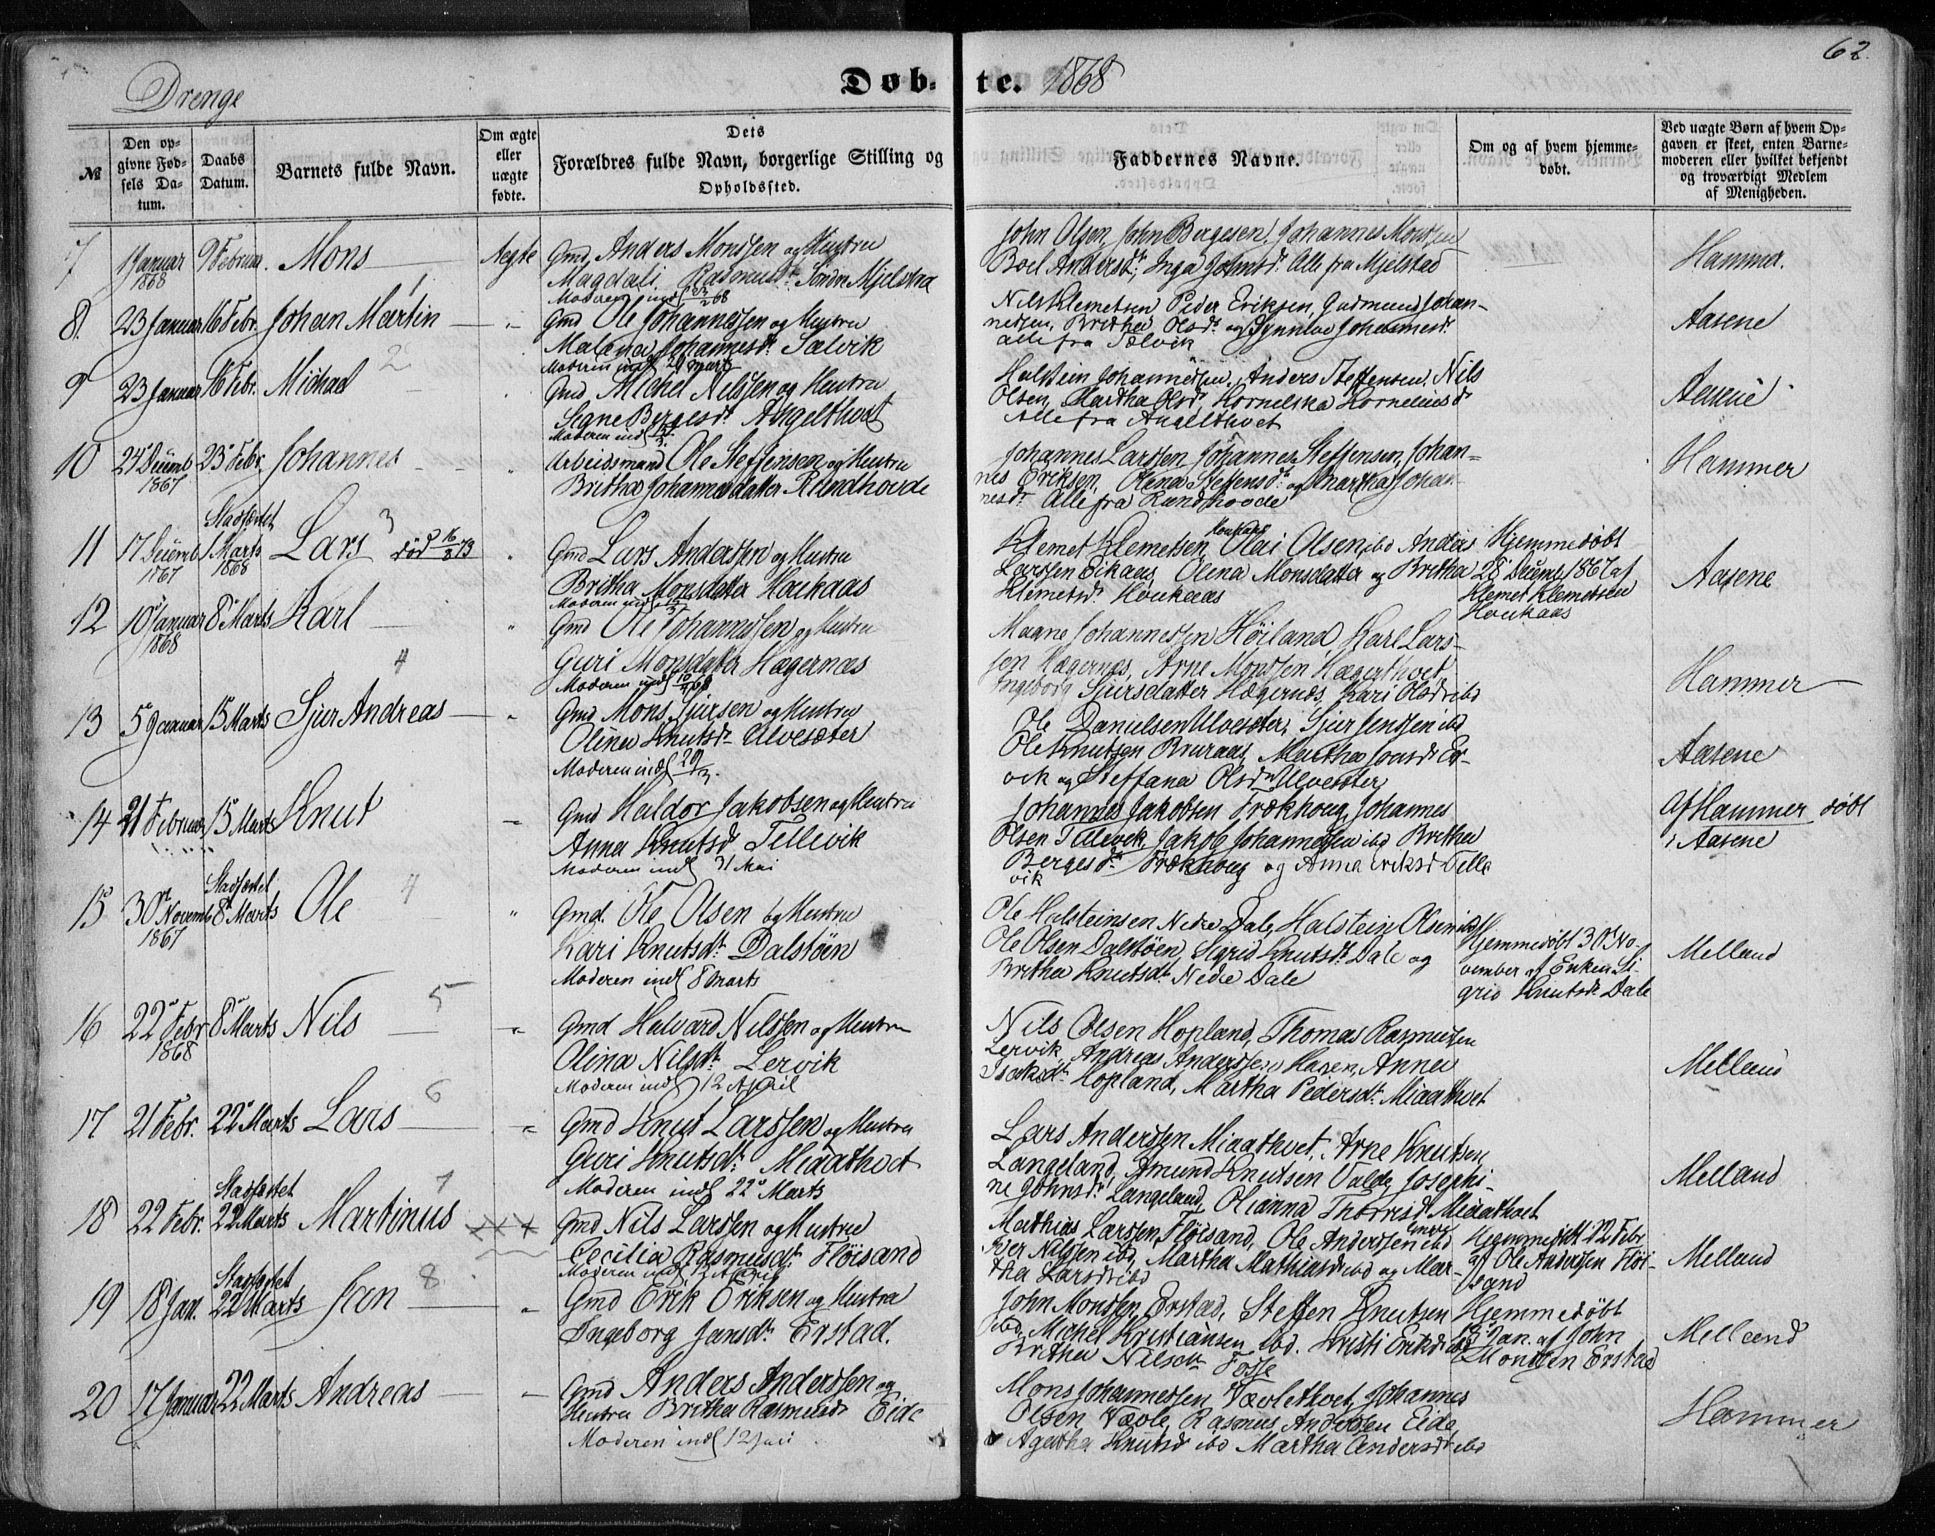 62
Drenge
Døb-te. 1868
№
Den opgivne Fødsels Datum.
Daabs Datum.
Barnets fulde Navn.
Om ægte eller uægte fødte.
Dets Forældres fulde Navn, borgerlige Stilling og Opholdssted.
Faddernes Navne.
Om og af hvem hjemmedøbt.
Ved uægte Børn af hvem Opgaven er skeet, enten Barnemoderen eller hvilket bekjendt og troværdigt Medlem af Menigheden.
7 1 Januar 1868 9 Februar Mons Ægte Gmd, Anders Monssen og Hustru
Magdali Rasmusdr Søndre Mjelstad
John Olsen, John Bergesen, Johannes Monssen
Boel Andersdr, Inga Johnsdr. Alle fra Mjelstad
Hammer.
8. 23 Januar 16 Febr. Johan Martin Gmd Ole Johannessen og Hustru
Malena Johannesdr. Sælvik
Nils Klemetsen Peder Eriksen, Gudmund Johan-
nessen, Brithe Olsdr og Synneve Johannesdr
alle fra Sælvik
Aasene
9 23 Januar 16 Febr. Michael 2 Gmd, Michel Nilssen og Hustru
Signe Bergesdr Angelthvet
Halstein Johannessen, Anders Steffensen, Nils
Olsen, Martha Olsdr, Kornelska Korneliusdr
Alle fra Angelthvet
Aasene
10 24 Decemb 1867 23 Febr Johannes Arbeidsmand Ole Steffensen og Hustru
Britha Johannesdatter Rundhovde
Johannes Larssen, Johannes Steffensen, Johan-
nes Eriksen, Olena Steffensdr og Martha Johan-
nesdr Alle fra Rundhovde
Hammer
11 17 Decemb 1767 Stadfæstet 1 Marts 1868 Lars 3 død 16/3 73
Gmd Lars Anderssen og Hustru
Britha Monsdatter Haukaas
Klemet Klemetsen Houkaas, Olai Olsen ibd Anders
Larssen Eikaas, Olina Monsdatter og Britha
Klemetsdr Houkaas
Hjemmedøbt
28 Decemb 1867 af
Klemet Klemetsen
Houkaas
Aasene
12 10 Januar 1868 8 Marts Karl
Gmd Ole Johannessen og Hustru
Guri Monsdatter Hægernæs
Magne Johannessen Høiland, Karl Lars-
sen Hægernæs, Arne Monssen Hægerthvet
Ingeborg Sjursdatter Hægernæs, Kari Olsdr ibd
Hammer
13 5 Januar 15 Marts Sjur Andreas 4
Gmd Mons Sjursen og Hustru
Olina Knutsdr Ulvesæter
Moderen indl 29/3.
Ole Danielsen Ulvesæter, Sjur Jenssen ibd
Ole Knutsen Bruraas, Martha Ivarsdr Er-
vik og Steffana Olsdr Ulvesæter
Aasene
14 21 Februar 15 Marts Knut
Gmd Haldor Jakobsen og Hustru
Anna Knutsd Tellevik
Moderen indl 31 Mai
Johannes Jakobsen Frækhoug, Johannes
Olsen Tellevik, Jakob Johannessen ibd Brithe
Bergesdr Frækhoug og Anna Eriksd Telle
vik
Af Hammer døbt
i Aasene
15 30 Novemb 1867 Stadfæstet 8 Marts Ole 4
Gmd. Ole Olsen og Hustru
Kari Knutsdr. Dalstøen
Moderen indl 8 Marts
Ole Halsteinsen Nedre Dale, Halstein Olsen ibd
Ole Olsen Dalstøen, Sigrid Knutsdr. Dale og
Britha Knutsdr. Nedre Dale
Hjemmedøbt 30 No-
vember af Enken Si-
grid Knutsdr Dale
Melland
16 22 Febr 1868 8 Marts Nils 5
Gmd Halvard Nilssen og Hustru
Olina Nilsdr. Lervik
Moderen indl 12 April
Nils Olsen Hopland, Thomas Rasmussen
Lervik, Andreas Anderssen Hagen, Anna
Isaksdr Hopland, Martha Pedersdr. Miaathvet
Melland
17 21 Febr. 22 Marts Lars 6
Gmd Knut Larssen og Hustru
Guri Knutsdr. Miaathvet
Moderen indl 22 Marts
Lars Anderssen Miaathvet, Arne Knutsen
Langeland, Amund Knutsen Valde, Josephi-
ne Johnsdr Langeland, Olianna Thorrisdr Miaathvet
Melland
18 22 Febr. Stadfæstet 22 Marts Martinus 7 xxx
Gmd Nils Larssen og Hustru
Cecilia Rasmusdr. Fløisand
Mathias Larssen Fløisand, Ole Anderssen ibd
Peder Nilssen ibd, Martha Mathiasdr ibd og Mar-
tha Larsdr ibd
Hjemmedøbt 22 Febr
af Ole Anderssen Fløi-
sand
Melland
19 18 Jan. Stadfæstet 22 Marts Jan 8
Gmd Erik Eriksen og Hustru
Ingeborg Jansdr. Erstad.
John Monssen Erstad, Steffen Knutsen
ibd, Michel Kristiansen ibd. Kristi Eriksdr ibd
Britha Nilsdr Fosse
Hjemmedøbt
18 Jan. af John
Monssen Erstad
Melland
20 17 Januar 22 Marts Andreas
Gmd Anders Anderssen og
Hustru Britha Rasmusdr Eide
Moderen indl 12 Juli
Mons Johannessen Vævlethvet, Johannes
Olsen Vævle, Rasmus Anderssen Eide
Agatha Knutsd ibd Martha Andersdr ibd
Hammer